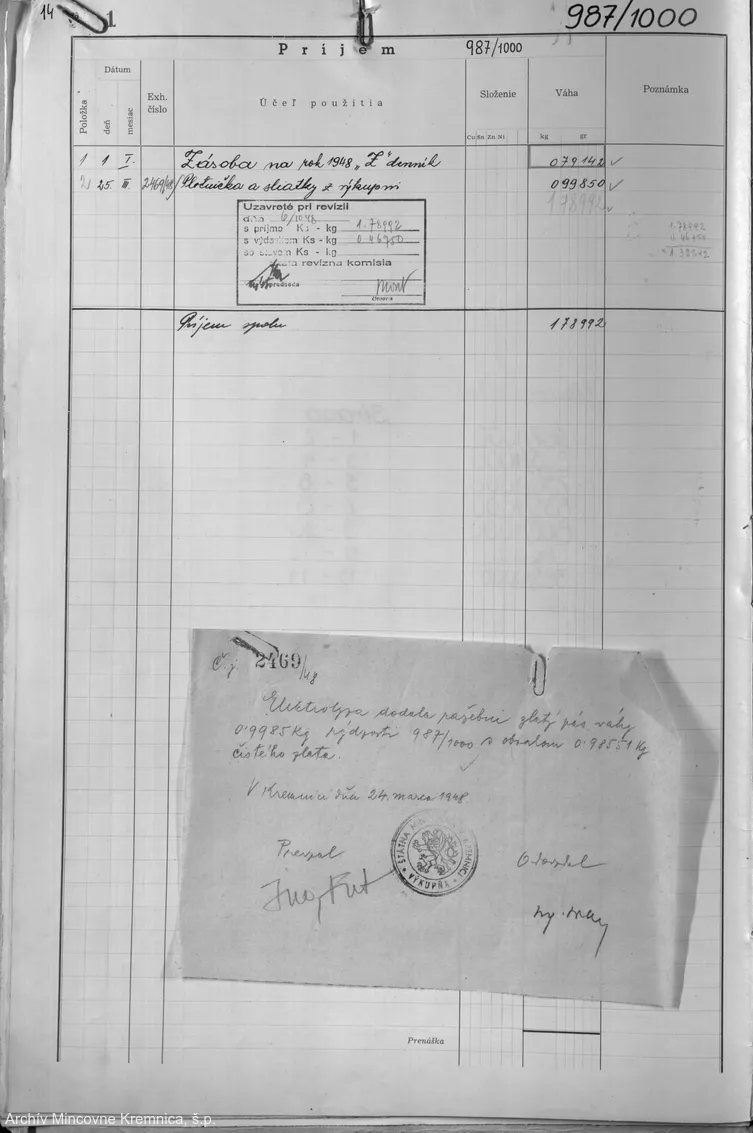 14
1
987/1000
Príjem 987/1000
Položka
Dátum
deň
mesiac
Exh. číslo
Účeľ použitia
Složenie
Cu Sn Zn Ni
Váha
kg gr
Poznámka
1 1 I. Zásoba na rok 1948 „Z" denník 079142
2 25. III. 2469/48 Plotnička a sliatky z výkupni 099850
178992
Uzavreté pri revízii
dňa 6/10 48
s príjmo Ks - kg 1.78992
s výd Ks - kg 0.46750
so stavom Ks - kg
revízna komisia
1.78992
0.46750
1.32242
Príjem spolu 178992
Č.j. 2469/48
Elektrolýza dodala razebni zlatý pás váhy
0.9985 Kg rýdzosti 987/1000 s obsahom 0.98551 Kg
čistého zlata.
V Kremnici dňa 24. marca 1948.
Prevzal
Odovzdal
ŠTÁTNA MINCOVŇA V KREMNICI
VÝKUPŇA
Prenáška
Archív Mincovne Kremnica, š.p.